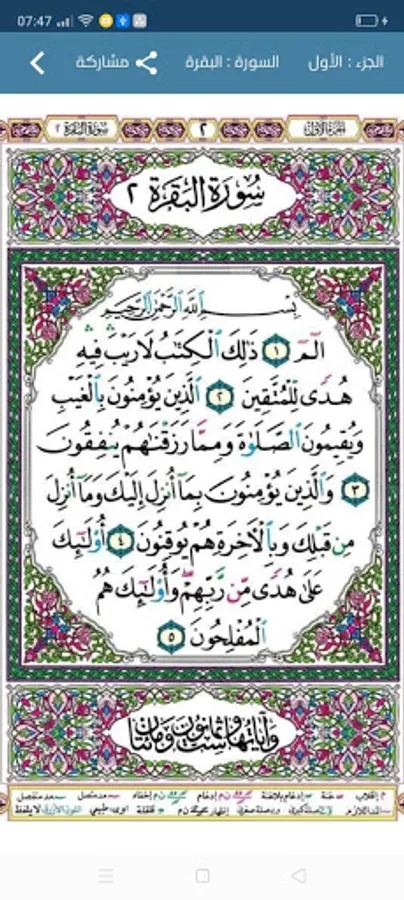 07:47
الجزء : الأول
السورة : البقرة
مشاركة
الجزء الأول
٢
سورة البقرة ٢
سُورَةُ البَقَرَةِ ٢
بِسْمِ اللَّهِ الرَّحْمَٰنِ الرَّحِيمِ
الٓمٓ ١ ذَٰلِكَ ٱلْكِتَٰبُ لَا رَيْبَ فِيهِ
هُدًى لِّلْمُتَّقِينَ ٢ ٱلَّذِينَ يُؤْمِنُونَ بِٱلْغَيْبِ
وَيُقِيمُونَ ٱلصَّلَوٰةَ وَمِمَّا رَزَقْنَٰهُمْ يُنفِقُونَ
٣ وَٱلَّذِينَ يُؤْمِنُونَ بِمَآ أُنزِلَ إِلَيْكَ وَمَآ أُنزِلَ
مِن قَبْلِكَ وَبِٱلْءَاخِرَةِ هُمْ يُوقِنُونَ ٤ أُو۟لَٰٓئِكَ
عَلَىٰ هُدًى مِّن رَّبِّهِمْ وَأُو۟لَٰٓئِكَ هُمُ
ٱلْمُفْلِحُونَ ٥
وآياتها ست وثمانون ومائتان